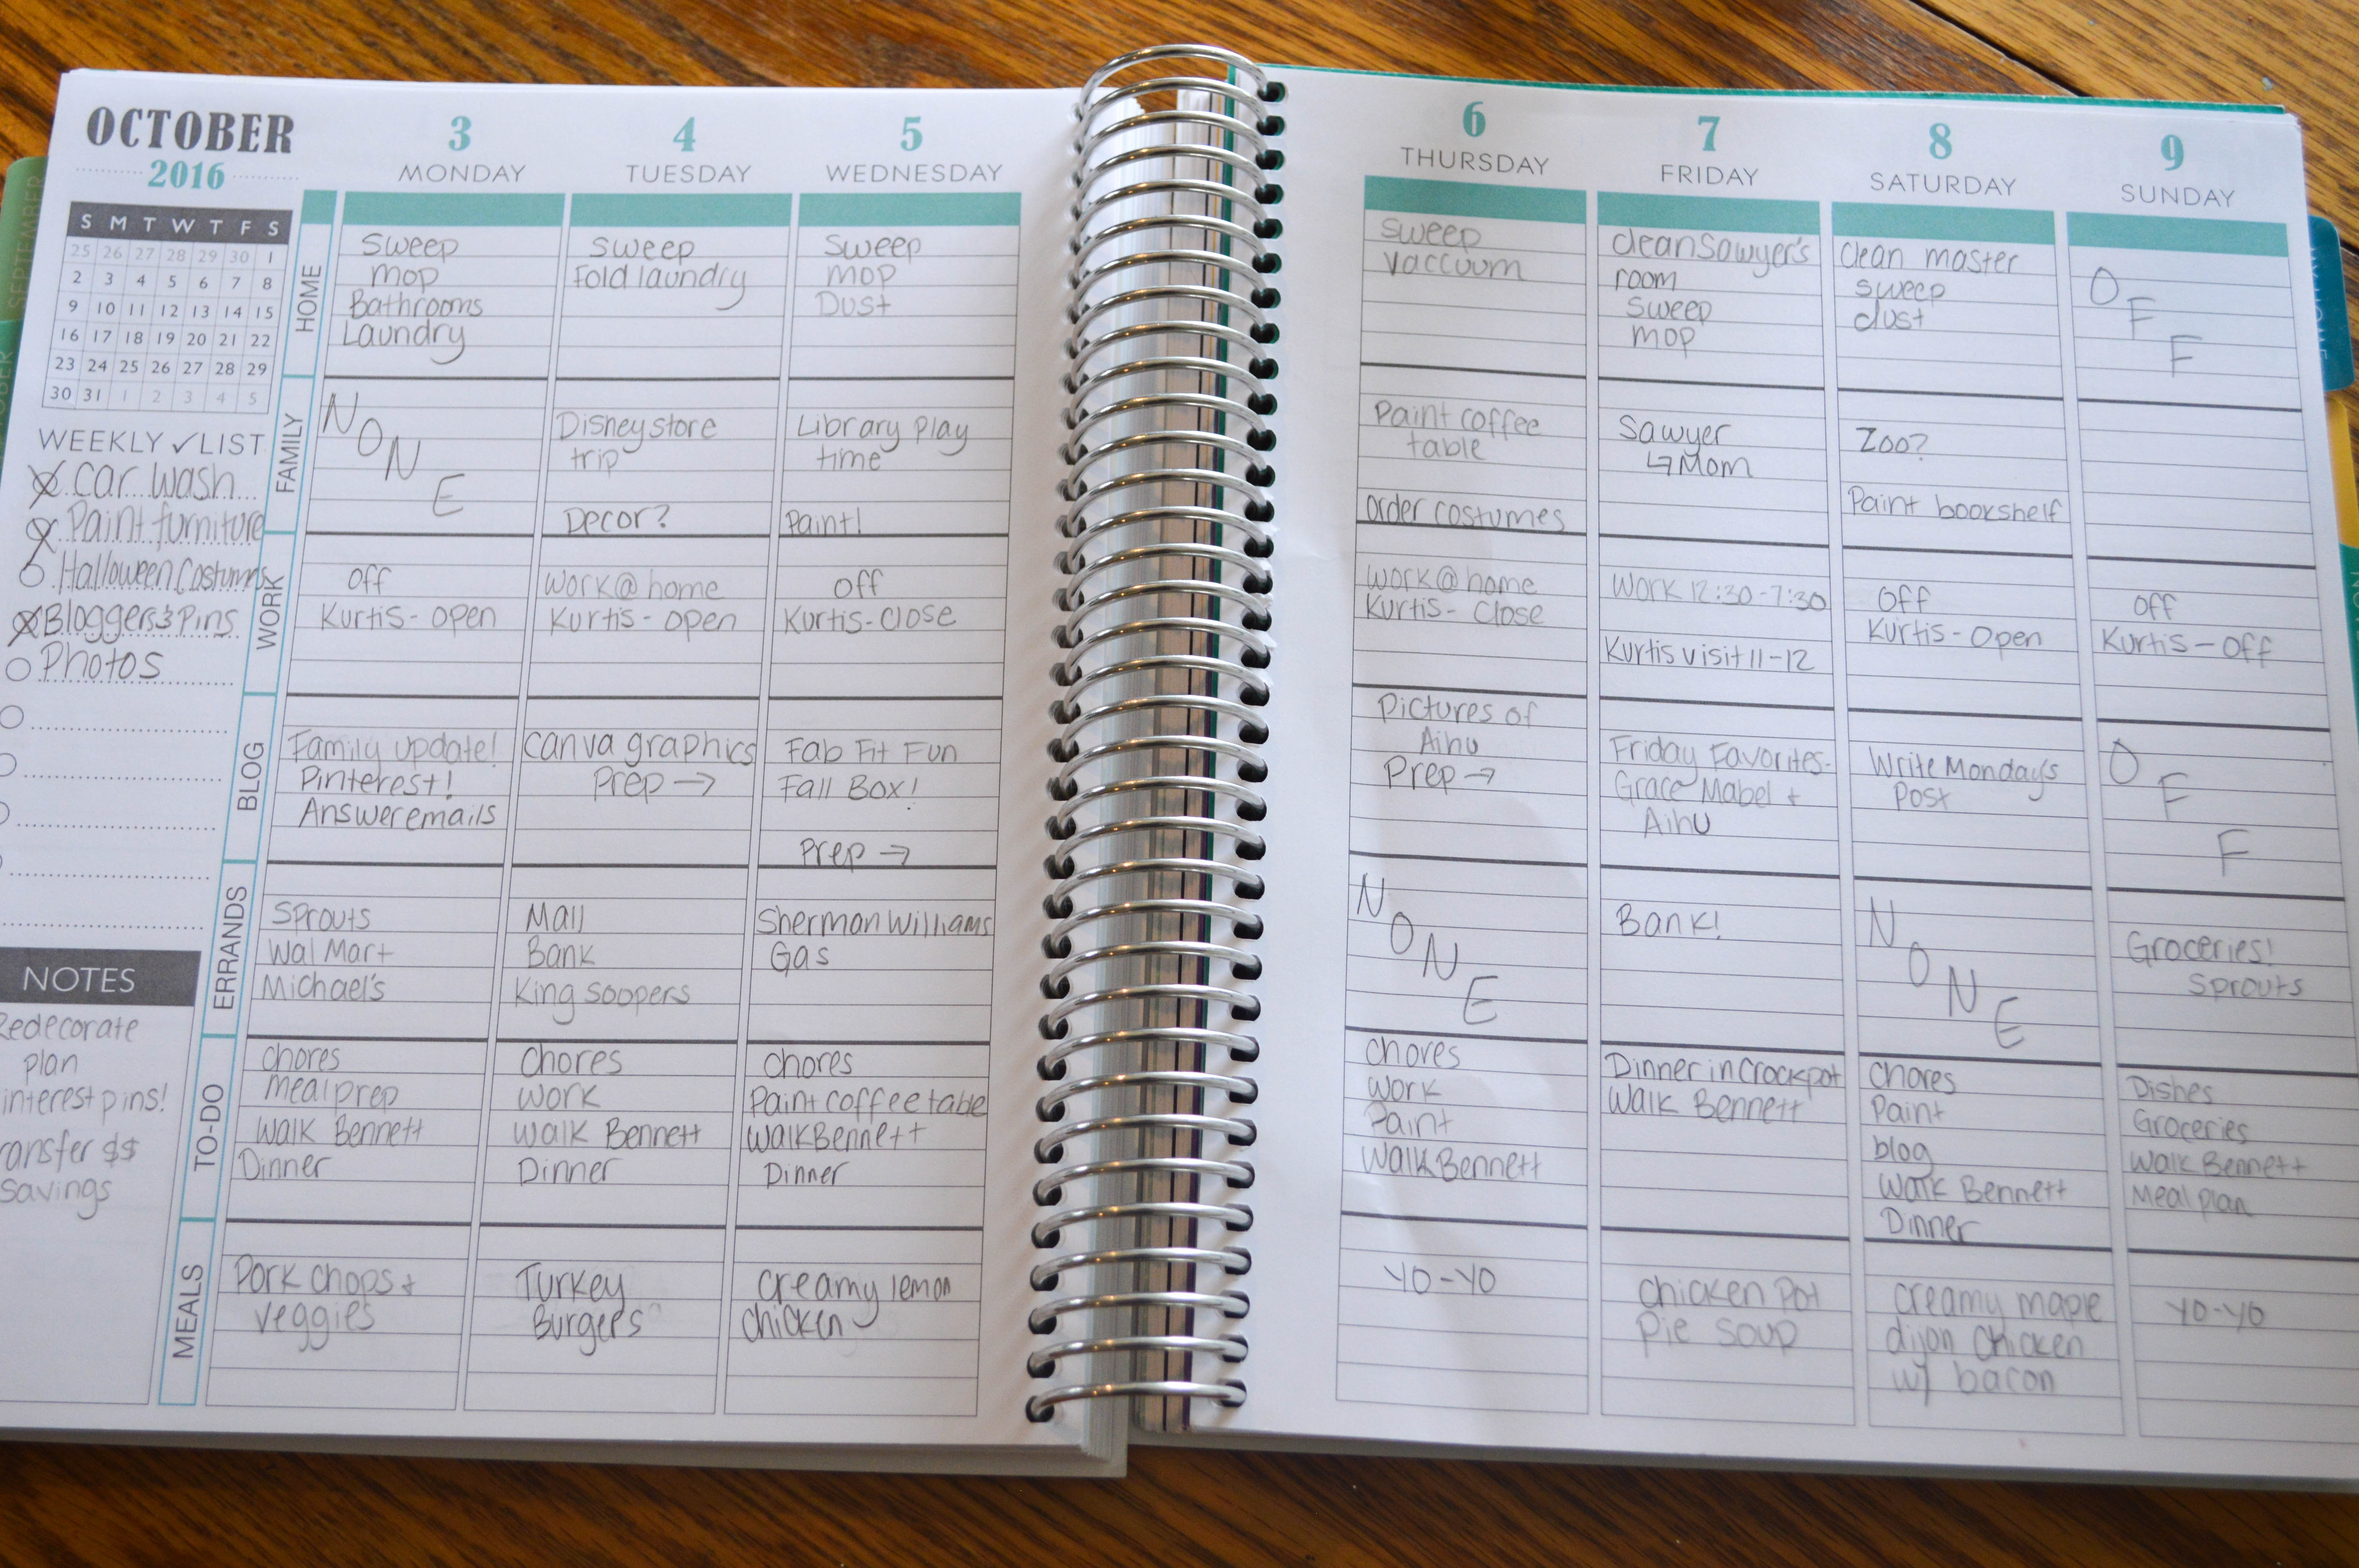 OCTOBER
2016
S M T W T F S
25 26 27 28 29 30 1
2 3 4 5 6 7 8
9 10 11 12 13 14 15
16 17 18 19 20 21 22
23 24 25 26 27 28 29
30 31 1 2 3 4 5
WEEKLY ✓LIST
Car wash
Paint furniture
Halloween Costumes
Bloggers & Pins
Photos
NOTES
Redecorate
plan
interest pins!
ransfer $$
Savings
SEPTEMBER
HOME
FAMILY
WORK
BLOG
ERRANDS
TO-DO
MEALS
3
MONDAY
Sweep
mop
Bathrooms
Laundry
NONE
Off
Kurtis - open
Family update!
Pinterest!
Answer emails
Sprouts
Wal Mart
Michael's
Chores
Meal prep
Walk Bennett
Dinner
Pork Chops +
veggies
4
TUESDAY
Sweep
Fold laundry
Disney store
trip
Decor?
Work @ home
Kurtis - open
Canva graphics
Prep →
Mall
Bank
King Soopers
Chores
Work
Walk Bennett
Dinner
Turkey
Burgers
5
WEDNESDAY
Sweep
Mop
Dust
Library Play
time
Paint!
Off
Kurtis - Close
Fab Fit Fun
Fall Box!
Prep →
Sherman Williams
Gas
Chores
Paint coffee table
Walk Bennett
Dinner
Creamy lemon
chicken
6
THURSDAY
Sweep
Vaccuum
Paint coffee
table
Order costumes
Work @ home
Kurtis - Close
Pictures of
Aihu
Prep →
NONE
Chores
Work
Paint
Walk Bennett
YO-YO
7
FRIDAY
Clean Sawyer's
room
Sweep
Mop
Sawyer
↳ Mom
Work 12:30-7:30
Kurtis visit 11-12
Friday Favorites-
Grace Mabel +
Aihu
Bank!
Dinner in Crockpot
Walk Bennett
Chicken Pot
Pie Soup
8
SATURDAY
Clean master
Sweep
dust
Zoo?
Paint bookshelf
Off
Kurtis - Open
Write Mondays
Post
NONE
Chores
Paint
blog
Walk Bennett
Dinner
Creamy maple
dijon chicken
w/ bacon
9
SUNDAY
OFF
Off
Kurtis - Off
OFF
Groceries!
Sprouts
Dishes
Groceries
Walk Bennett
Meal plan
YO-YO